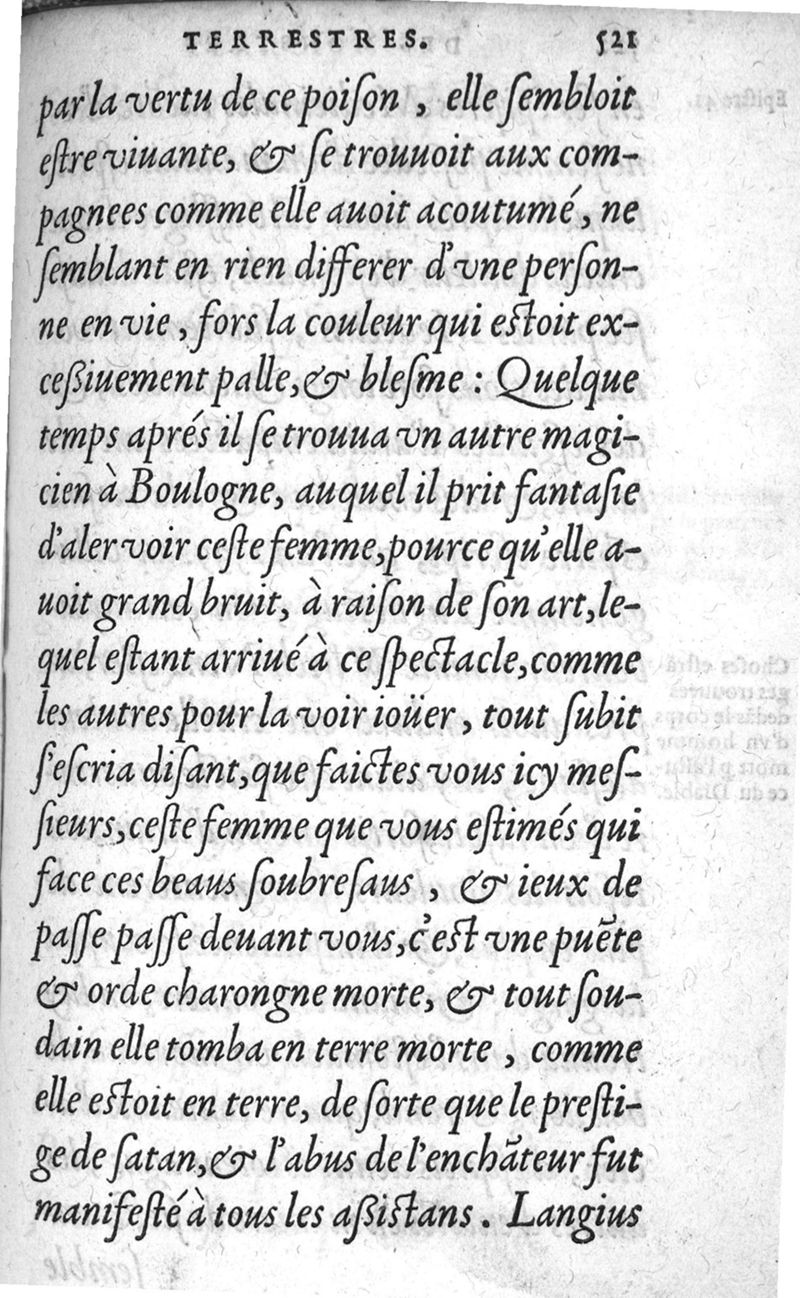 TERRESTRES. 521
par la vertu de ce poiſon , elle ſembloit
eſtre viuante, & ſe trouuoit aux com-
pagnees comme elle auoit acoutumé, ne
ſemblant en rien differer d'vne perſon-
ne en vie , fors la couleur qui eſtoit ex-
ceßiuement palle, & bleſme : Quelque
temps aprés il ſe trouua vn autre magi-
cien à Boulogne, auquel il prit fantaſie
d'aler voir ceſte femme, pource qu'elle a-
uoit grand bruit, à raiſon de ſon art, le-
quel eſtant arriué à ce ſpectacle, comme
les autres pour la voir ioüer , tout ſubit
s'eſcria diſant, que faictes vous icy meſ-
ſieurs, ceſte femme que vous eſtimés qui
face ces beaus ſoubreſaus , & ieux de
paſſe paſſe deuant vous, c'eſt vne puẽte
& orde charongne morte, & tout ſou-
dain elle tomba en terre morte , comme
elle eſtoit en terre, de ſorte que le preſti-
ge de ſatan, & l'abus de l'enchãteur fut
manifeſté à tous les aßiſtans . Langius